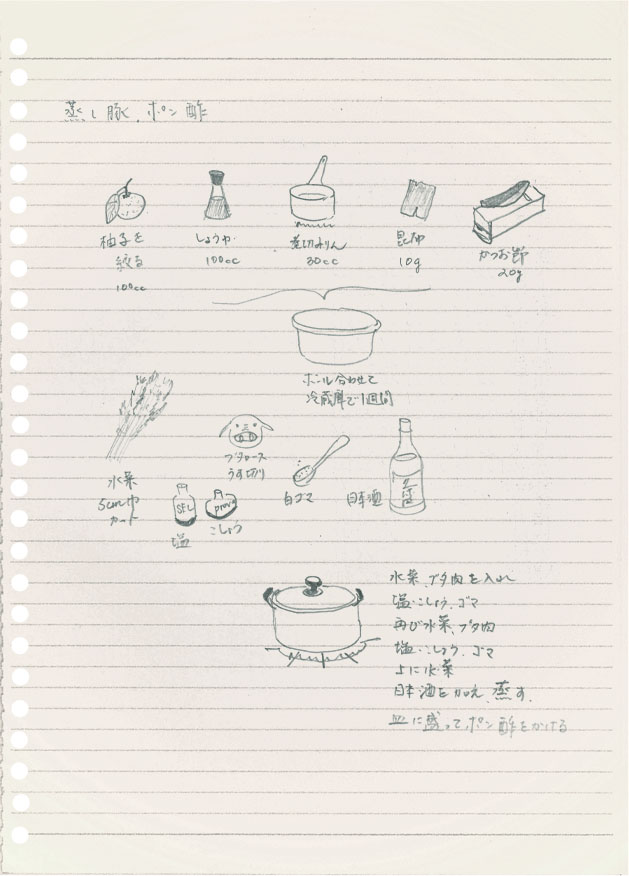 蒸し豚、ポン酢
柚子を
絞る
100cc
しょうゆ
100cc
煮切みりん
30cc
昆布
10g
かつお節
20g
ボール合わせて
冷蔵庫で1週間
水菜
5cm巾
カット
ブタロース
うす切り
SEL
塩
こしょう
白ゴマ
日本酒
水菜、ブタ肉を入れ
塩・こしょう、ゴマ
再び水菜、ブタ肉
塩・こしょう、ゴマ
上に水菜
日本酒を加え、蒸す。
皿に盛って、ポン酢をかける